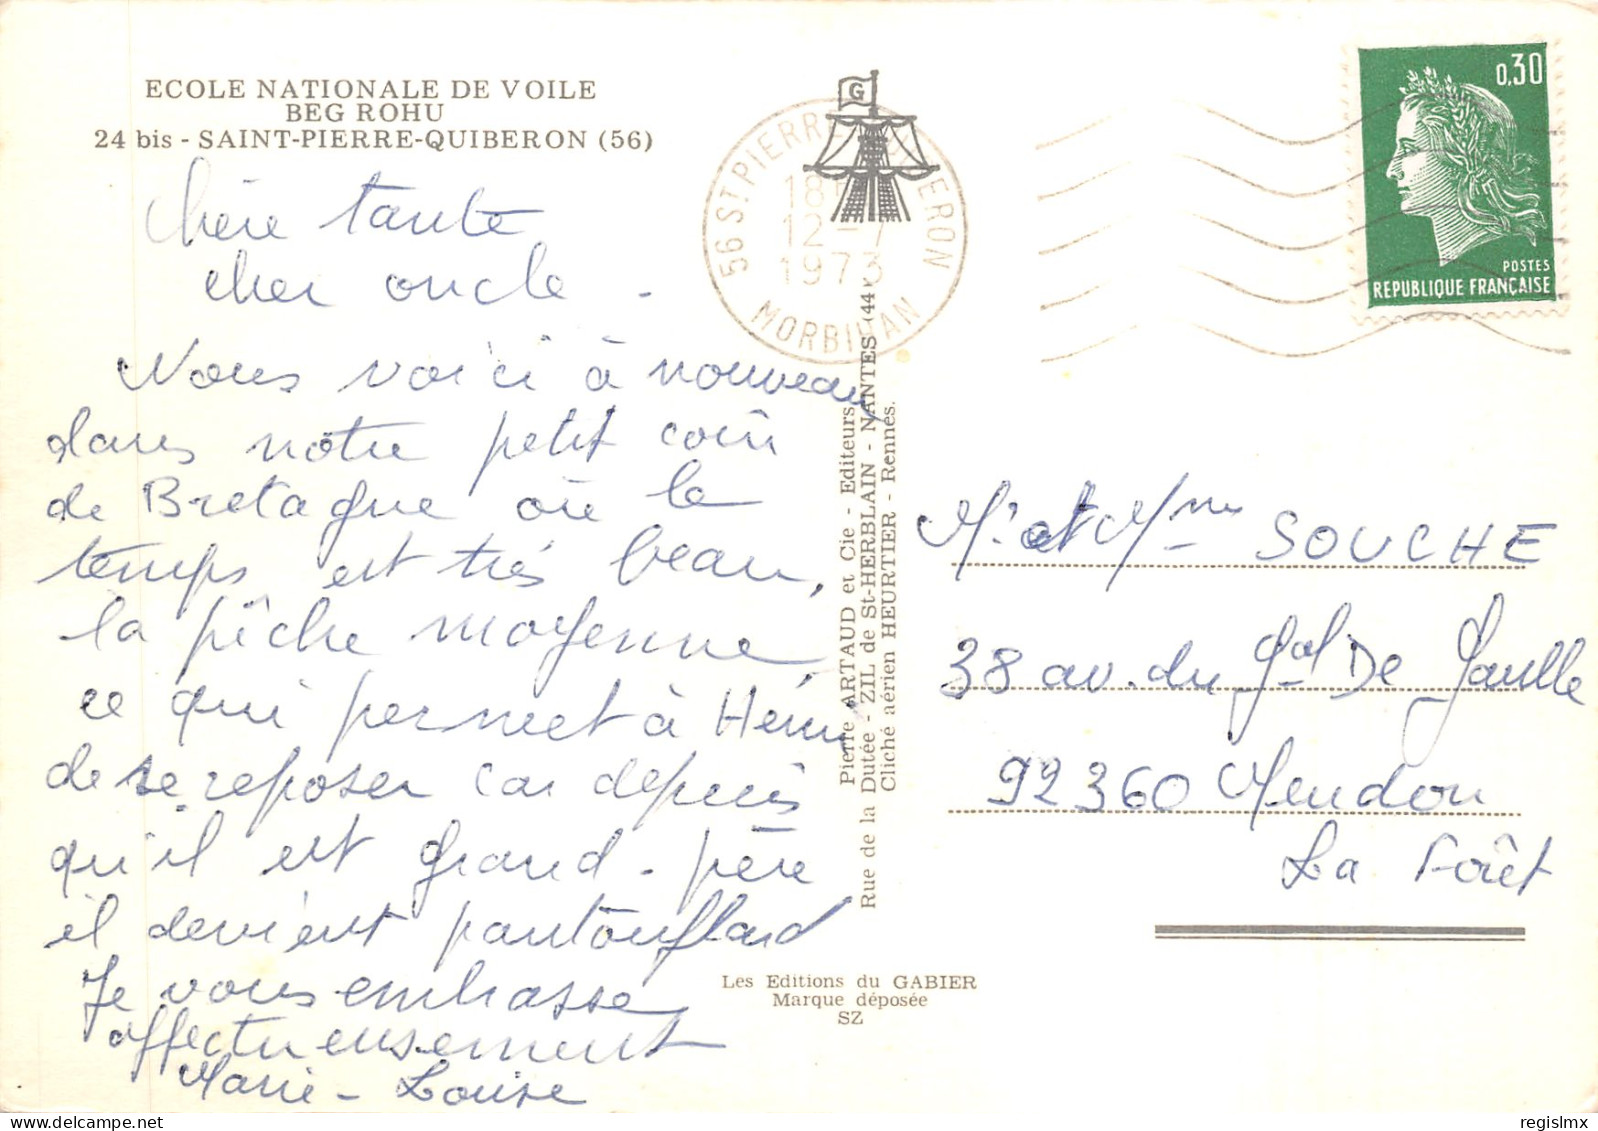 ECOLE NATIONALE DE VOILE
BEG ROHU
24 bis - SAINT-PIERRE-QUIBERON (56)
Chère tante
cher oncle -
Nous voici à nouveau
dans notre petit coin
de Bretagne où le
temps est très beau,
la pêche moyenne,
ce qui permet à Henri
de se reposer car depuis
qu'il est grand-père
il devient pantouflard
Je vous embrasse
affectueusement
Marie-Louise
G
56 ST PIERRE QUIBERON
12-7
1973
MORBIHAN
Pierre ARTAUD et Cie - Editeurs
Rue de la Dutée - ZIL de St-HERBLAIN - NANTES (44)
Cliché aérien HEURTIER - Rennes.
Les Editions du GABIER
Marque déposée
SZ
0,30
POSTES
REPUBLIQUE FRANÇAISE
M. et Mme SOUCHE
38 av. du Gal De Gaulle
92360 Meudon
La Forêt
regislmx